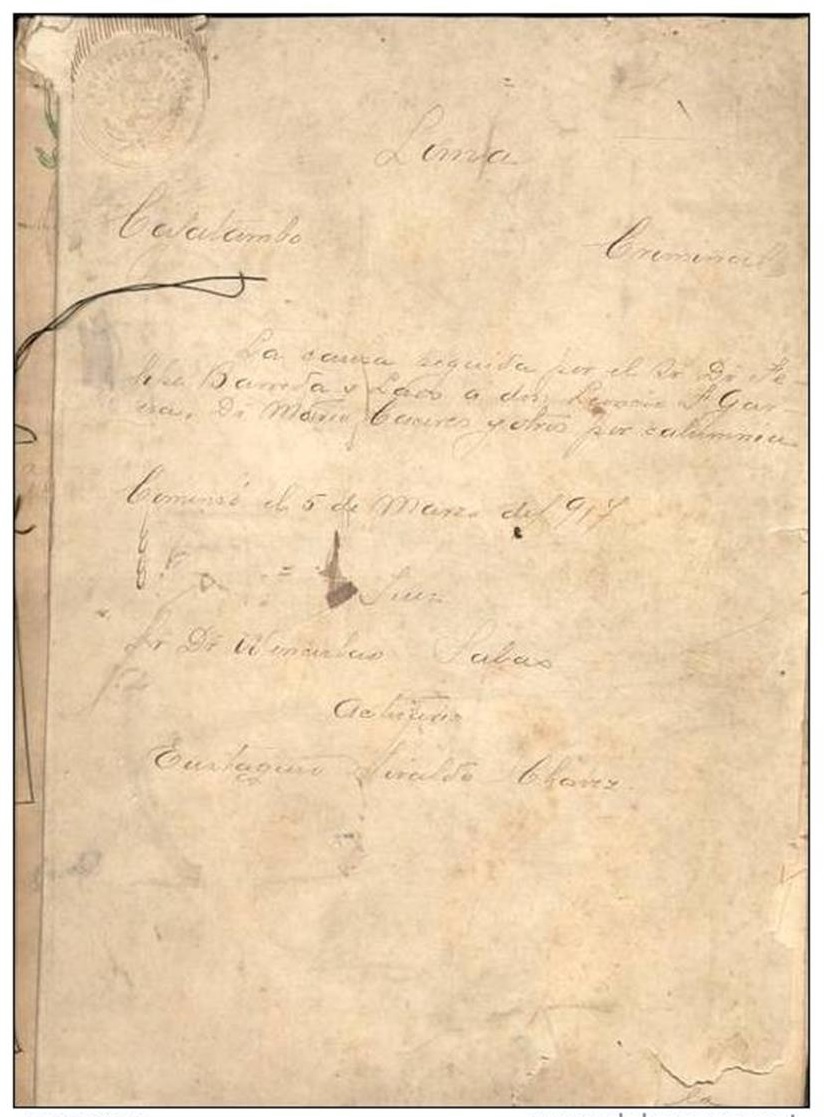 Lima
Cajatambo
Criminal
La causa seguida por el Sr. Dr. Fe-
lipe Barreda y Laos a don F. Gar-
cia, Dr. Mario Caceres y otros por calumnia
Comensó el 5 de Marzo del 917
Juez
Sr Dr Wenceslao Salas
Actuario
Eustaquio Giraldo Chavez.